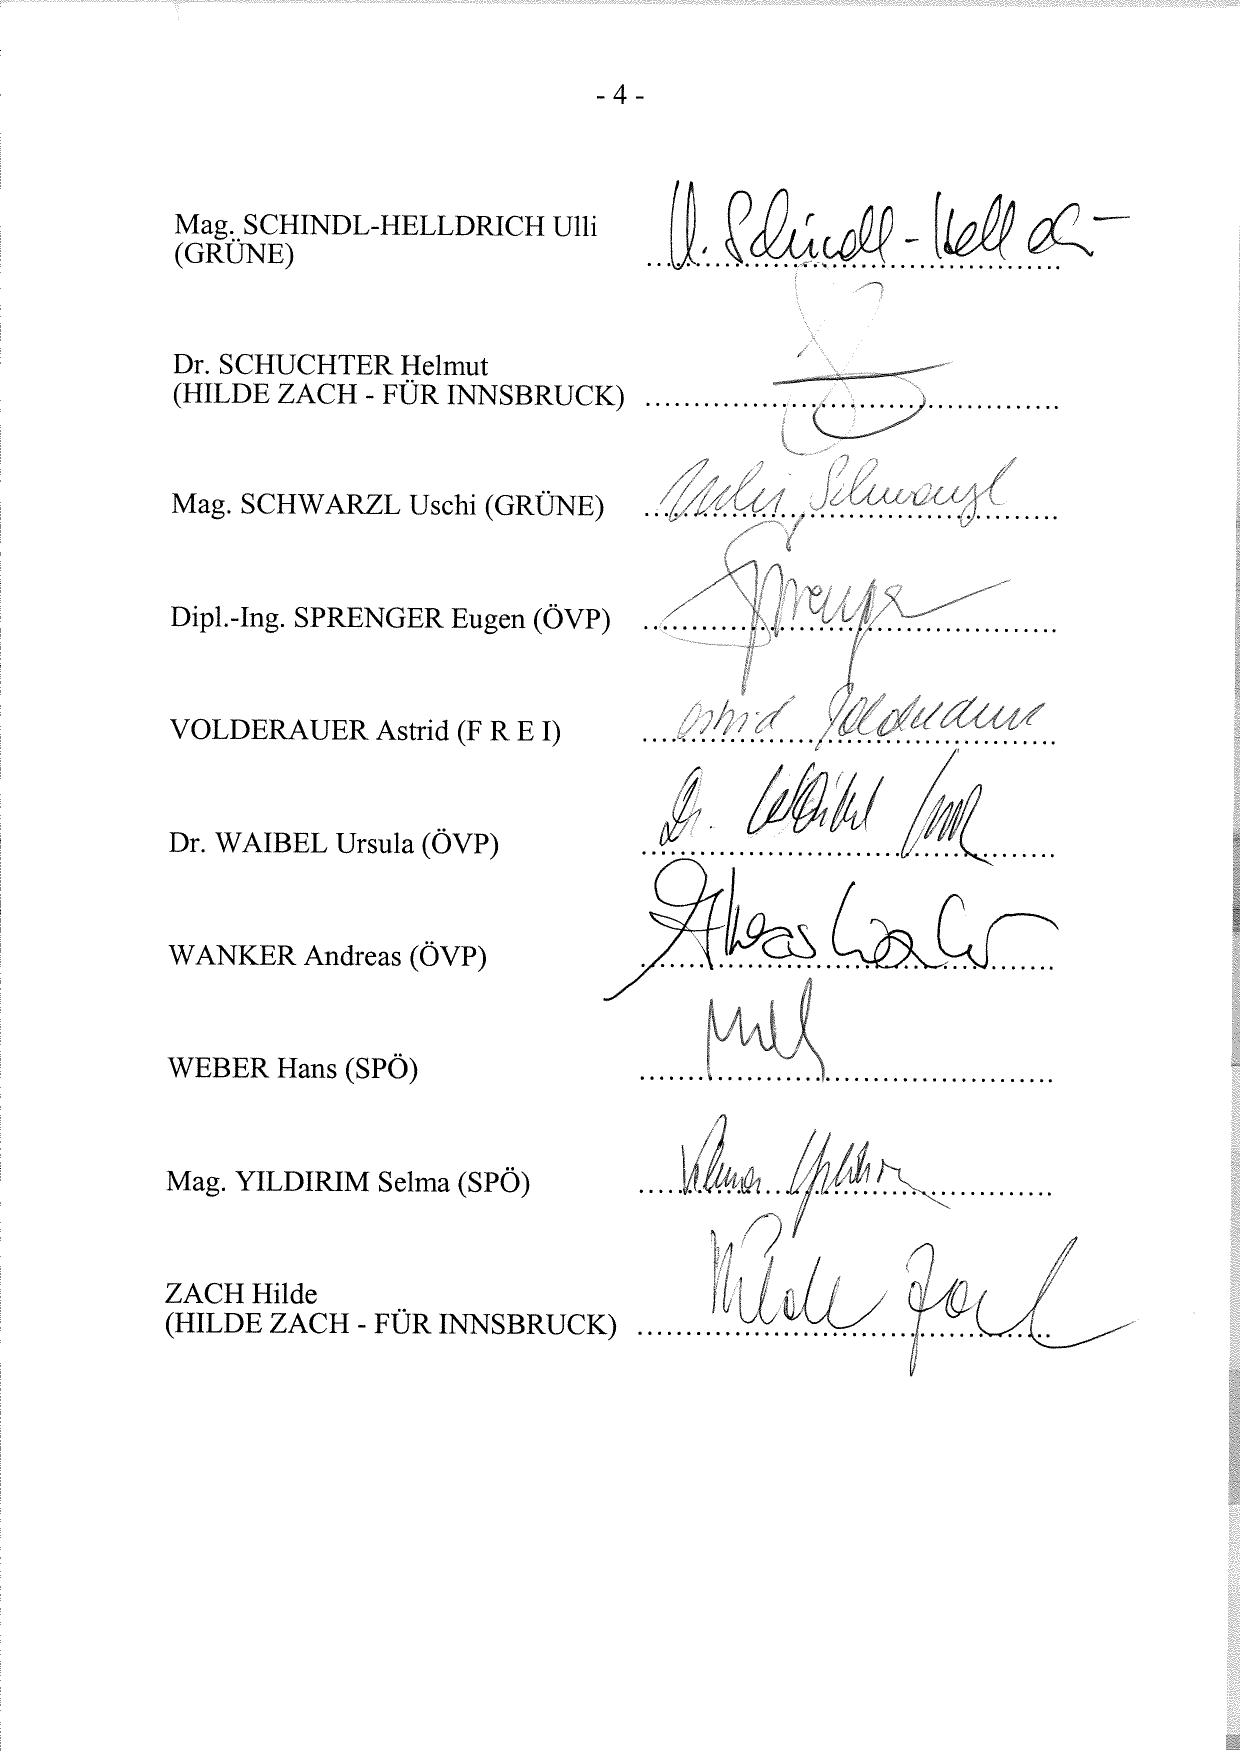 - 4 -
Mag. SCHINDL-HELLDRICH Ulli
(GRÜNE)
U. Schindl-Helld
Dr. SCHUCHTER Helmut
(HILDE ZACH - FÜR INNSBRUCK)
Mag. SCHWARZL Uschi (GRÜNE)
Uschi Schwarzl
Dipl.-Ing. SPRENGER Eugen (ÖVP)
Sprenger
VOLDERAUER Astrid (F R E I)
Astrid Volderauer
Dr. WAIBEL Ursula (ÖVP)
Dr. Waibel
WANKER Andreas (ÖVP)
Andreas
WEBER Hans (SPÖ)
Mag. YILDIRIM Selma (SPÖ)
Selma Yildirim
ZACH Hilde
(HILDE ZACH - FÜR INNSBRUCK)
Hilde Zach